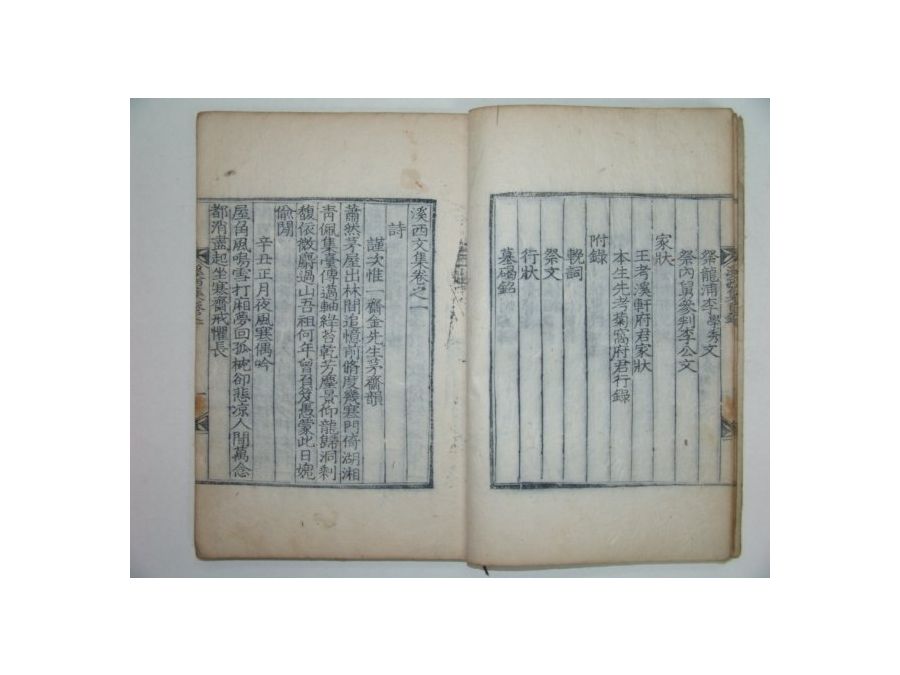 祭龍浦李學秀文
祭內舅參判李公文
家狀
王考溪軒府君家狀
本生先考菊窩府君行錄
附錄
輓詞
祭文
行狀
墓碣銘
溪西文集卷之一
詩
謹次惟一齋金先生茅齋韻
蕭然茅屋出林間追憶前脩度幾寒門倚湖湘
靑佩集臺傳薖軸綠苔乾芳塵景仰龍歸洞剩
馥依微麝過山吾祖何年曾負笈愚蒙此日媿
偸閒
辛丑正月夜風寒偶吟
屋角風鳴雪打廂夢回孤枕却悲凉人間萬念
都消盡起坐寒齋戒懼長